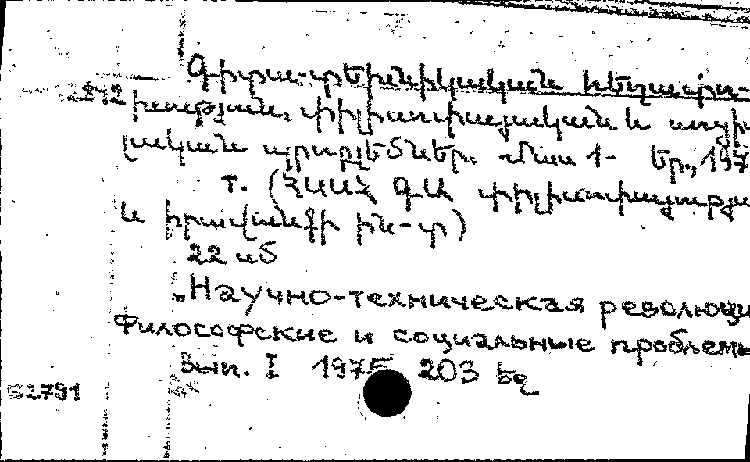 Գիտա-տեխնիկական հեղափո-
խության փիլիսոփայական և սոցի
ալական պրոբլեմներ. Մաս 1- Եր., 197
т. (ՀՍՍՀ ԳԱ փիլիսոփայությա
և իրավունքի ին-տ)
22 սմ
Научно-техническая революци
Философские и социальные проблемы
Вып. I 1975 203 էջ
52791